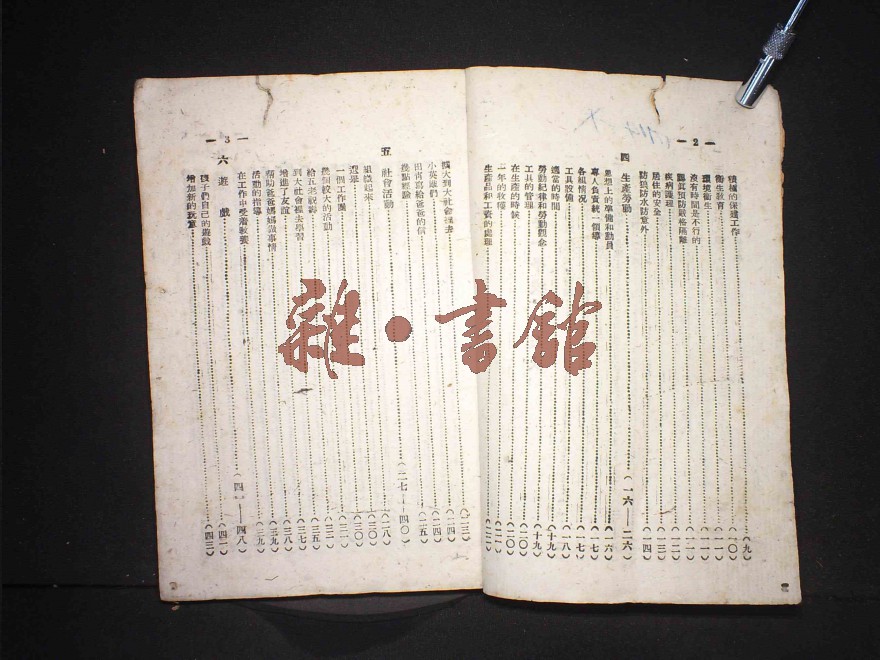 — 2 —
積極的保健工作……(九)
衛生教育……(一〇)
環境衛生……(一一)
沒有時間是不行的……(一一)
疾病護理……(一二)
居住的安全……(一三)
防狼防水防意外……(一四)
四 生產勞動……(一六——二六)
思想上的準備和動員……(一六)
專人負責統一領導……(一七)
各組情況……(一七)
工具設備……(一八)
適當的時間……(十九)
勞動紀律和勞動觀念……(十九)
工具的管理……(二〇)
在生產的時候……(二〇)
一年的收穫……(二一)
生產品和工資的處理……(二二)
— 3 —
擴大到大社會裡去……(二三)
小英雄們……(二四)
田宵寫給爸爸的信……(二四)
幾點經驗……(二五)
五 社會活動……(二七——四〇)
組織起來……(二八)
選舉……(三〇)
一個工作團……(三〇)
幾個較大的活動……(三一)
給五老祝壽……(三二)
到大社會裡去學習……(三五)
增進了友誼……(三七)
幫助爸爸媽媽做事情……(三八)
活動的指導……(三九)
在工作中受着教養……(三九)
六 遊戲……(四一——四八)
孩子們自己的遊戲……(四一)
增加新的玩意……(四三)
雜·書館